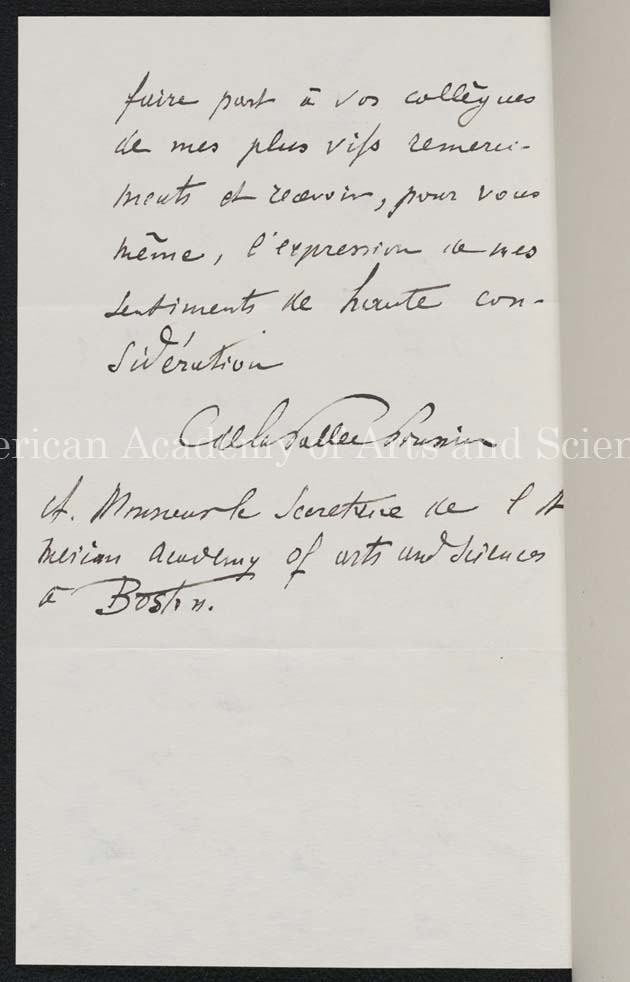 faire part à vos collègues
de mes plus vifs remerci-
ments et recevoir, pour vous
même, l'expression de mes
sentiments de haute con-
sidération
C de la Vallée Poussin
erican Academy of Arts and Scien
A. Monsieur le Secretaire de l'A
merican Academy of arts and Sciences
à Boston.